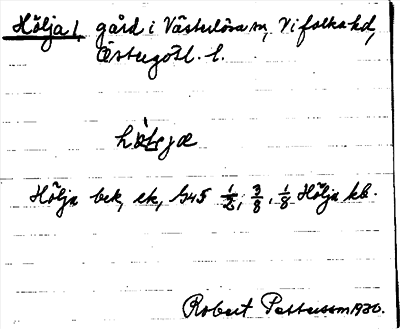 Hölja 1, gård i Västerlösa sn, Vifolka hd,
Östergötl. l.
Hölja bek, ek, G45 1/2, 3/8, 1/8 Hölja kb.
Robert Pettersson 1930.